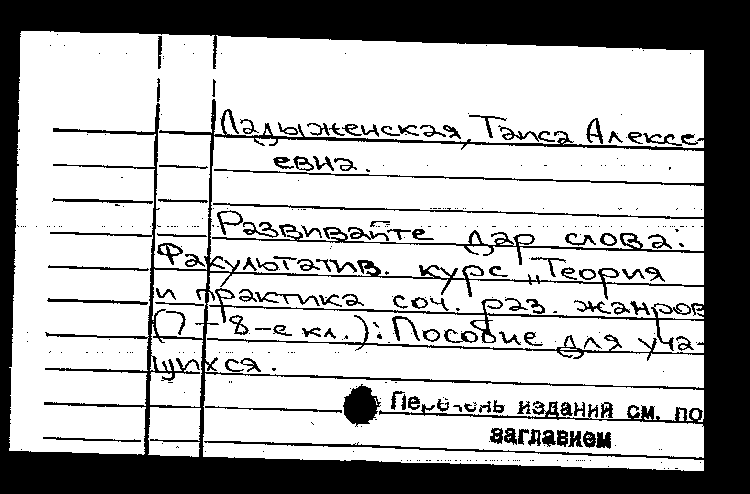 Ладыженская, Таиса Алексе-
евна.
Развивайте дар слова:
Факультатив. курс „Теория
и практика соч. раз. жанров
(7–8-е кл.): Пособие для уча-
щихся.
Перечень изданий см. по
заглавием